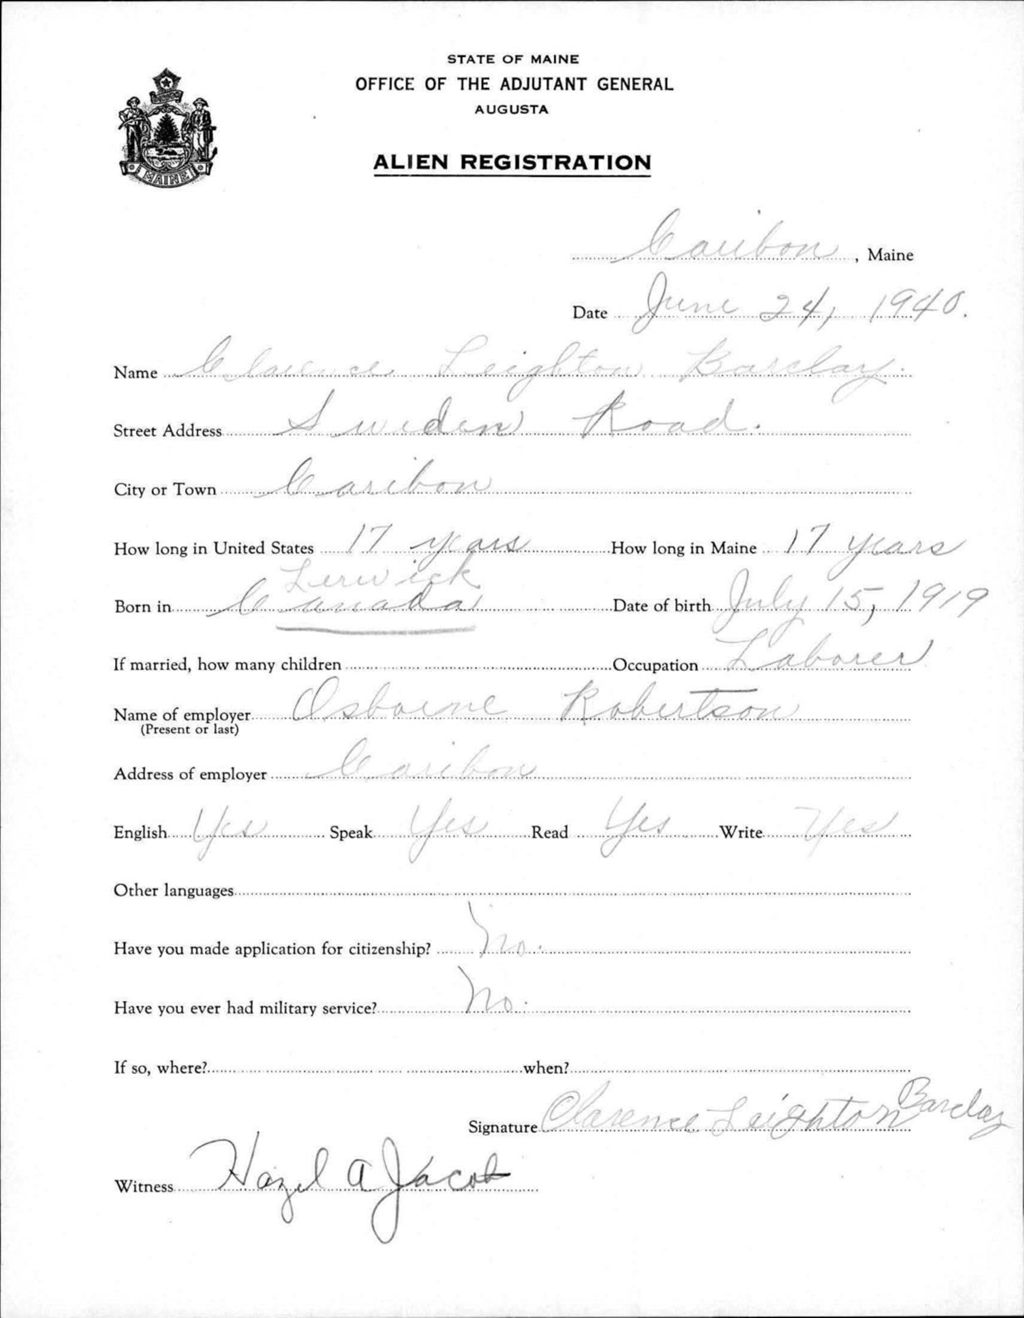 STATE OF MAINE
OFFICE OF THE ADJUTANT GENERAL
AUGUSTA
MAINE
ALIEN REGISTRATION
Caribou, Maine
Date June 24, 1940.
Name Clarence Leighton Barclay.
Street Address Sweden Road.
City or Town Caribou
How long in United States 17 years How long in Maine 17 years
Lerwick
Born in Canada Date of birth July 15, 1919
If married, how many children Occupation Laborer
Name of employer Osborne Robertson
(Present or last)
Address of employer Caribou
English Yes Speak Yes Read Yes Write Yes
Other languages
Have you made application for citizenship? No.
Have you ever had military service? No.
If so, where? when?
Signature Clarence Leighton Barclay
Witness Hazel A Jacot